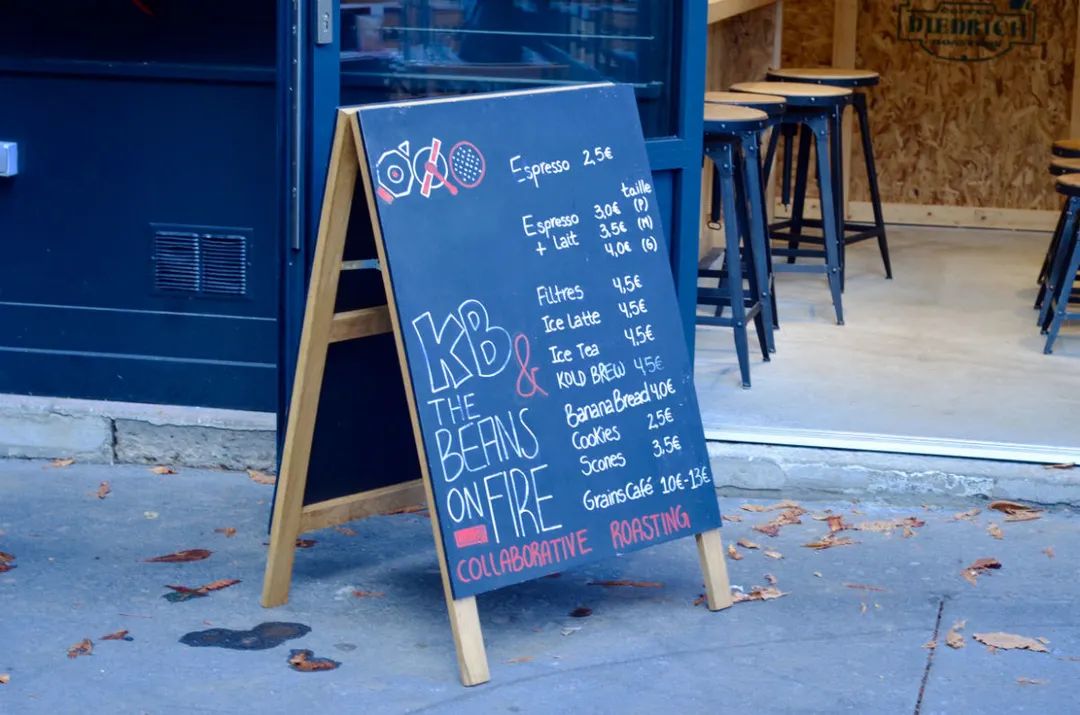 DIEDRICH
Espresso 2,5€
taille
Espresso 3,0€ (P)
+ Lait 3,5€ (M)
4,0€ (G)
Filtres 4,5€
Ice Latte 4,5€
Ice Tea 4,5€
KOLD BREW 4,5€
Banana Bread 4,0€
Cookies 2,5€
Scones 3,5€
Grains Café 10€-13€
KB &
THE
BEANS
ON FIRE
COLLABORATIVE ROASTING